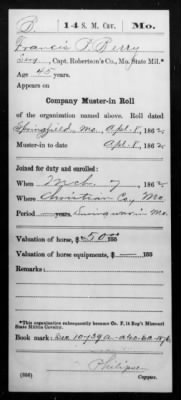 B. 14 S. M. Cav. Mo.
Francis P. Berry
Capt. Robertson's Co., Mo. State Mil.*
Age 45 years.
Appears on
Company Muster-in Roll
of the organization named above. Roll dated
Springfield, Mo. Apl. 8, 1862
Muster-in to date Apl. 8, 1862
Joined for duty and enrolled:
When Mch. 7, 1862
Where Christian Co. Mo.
Period years. During war in Mo.
Valuation of horse, $ 50 00/100
Valuation of horse equipments, $ — /100
Remarks:
*This organization subsequently became Co. F, 14 Reg't Missouri
State Militia Cavalry.
Book mark:
(356) Copyist.